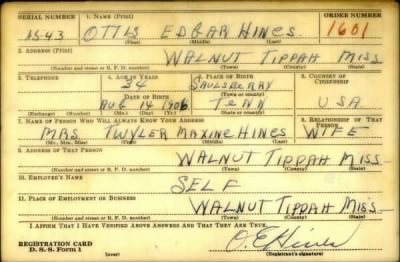 SERIAL NUMBER 1. NAME (Print) ORDER NUMBER
1543 OTTIS EDGAR HINES 1601
(First) (Middle) (Last)
2. ADDRESS (Print)
WALNUT TIPPAH MISS.
(Number and street or R. F. D. number) (Town) (County) (State)
3. TELEPHONE 4. AGE IN YEARS 5. PLACE OF BIRTH 6. COUNTRY OF CITIZENSHIP
34 SAULSBERRY
DATE OF BIRTH (Town or county)
AUG 14 1906 TENN USA
(Exchange) (Number) (Mo.) (Day) (Yr.) (State or country)
7. NAME OF PERSON WHO WILL ALWAYS KNOW YOUR ADDRESS 8. RELATIONSHIP OF THAT PERSON
MRS. TWYLER MAXINE HINES WIFE
(Mr., Mrs., Miss) (First) (Middle) (Last)
9. ADDRESS OF THAT PERSON
WALNUT TIPPAH MISS.
(Number and street or R. F. D. number) (Town) (County) (State)
10. EMPLOYER'S NAME
SELF
11. PLACE OF EMPLOYMENT OR BUSINESS
WALNUT TIPPAH MISS
(Number and street or R. F. D. number) (Town) (County) (State)
I AFFIRM THAT I HAVE VERIFIED ABOVE ANSWERS AND THAT THEY ARE TRUE.
REGISTRATION CARD O. E. Hines
D. S. S. Form 1 (over) (Registrant's signature)